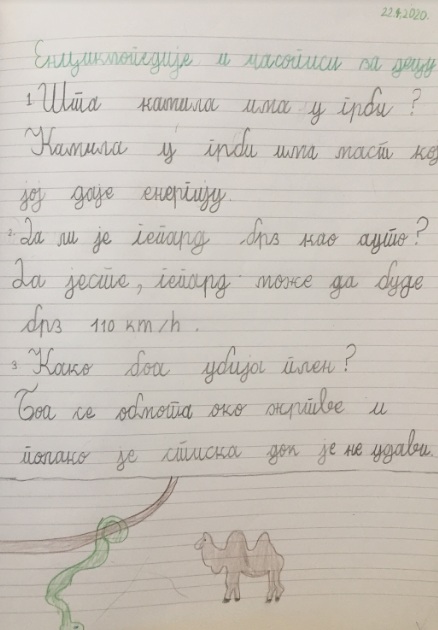 22.4.2020.
Енциклопедије и часописи за децу
1 Шта камила има у грби?
Камила у грби има маст кој
јој даје енергију.
2. Да ли је гепард брз као ауто?
Да јесте, гепард може да буде
брз 110 km/h.
3 Како боа убија плен?
Боа се обмота око жртве и
полако је стиска док је не удави.